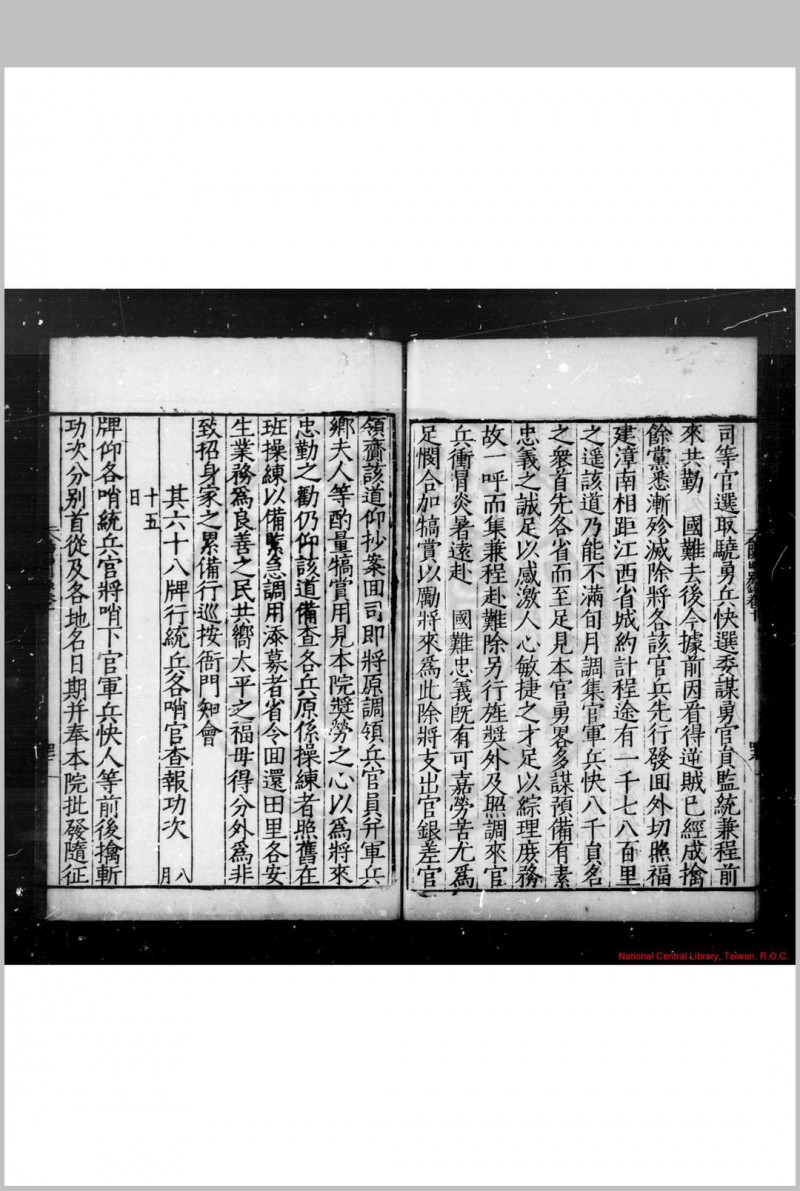 司等官選取驍勇兵快選委謀勇官員監統兼程前
來共勤　國難去後今據前因看得逆賊已經成擒
餘黨悉漸殄滅除將各該官兵先行發囬外切照福
建漳南相距江西省城約計程途有一千七八百里
之遥該道乃能不滿旬月調集官軍兵快八千員名
之衆首先各省而至足見本官勇畧多謀預備有素
忠義之誠足以感激人心敏捷之才足以綜理庶務
故一呼而集兼程赴難除另行旌奬外及照調來官
兵衝冒炎暑遠赴　國難忠義旣有可嘉勞苦尤爲
足憫合加犒賞以勵將來爲此除將支出官銀差官
領齎該道仰抄案囬司即將原調領兵官員并軍兵
鄉夫人等酌量犒賞用見本院奬勞之心以爲將來
忠勤之勸仍仰該道備查各兵原係操練者照舊在
班操練以備緊急調用添募者省令囬還田里各安
生業務爲良善之民共嚮太平之福毋得分外爲非
致招身家之累備行巡按衙門知會
其六十八牌行統兵各哨官查報功次　八月
十五日
牌仰各哨統兵官將哨下官軍兵快人等前後擒斬
功次分别首從及各地名日期并奉本院批發隨征
National Central Library, Taiwan, R.O.C.